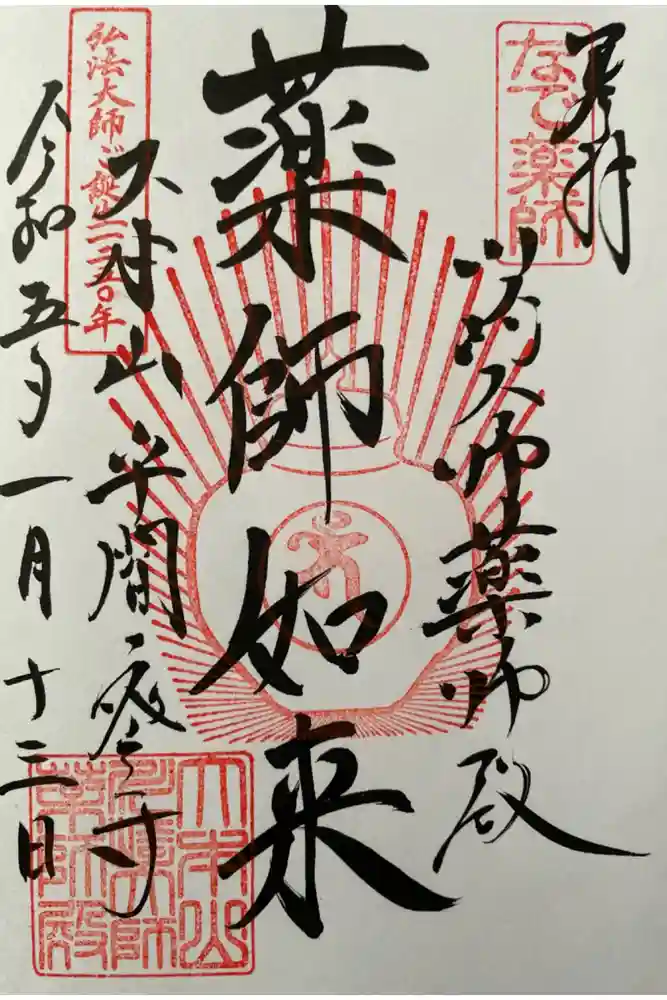 奉拝
なで薬師
川崎大師薬師殿
薬師如来
弘法大師ご誕生一二五〇年
大本山平間寺
令和五年一月十三日
大本山
川崎大師
薬師殿